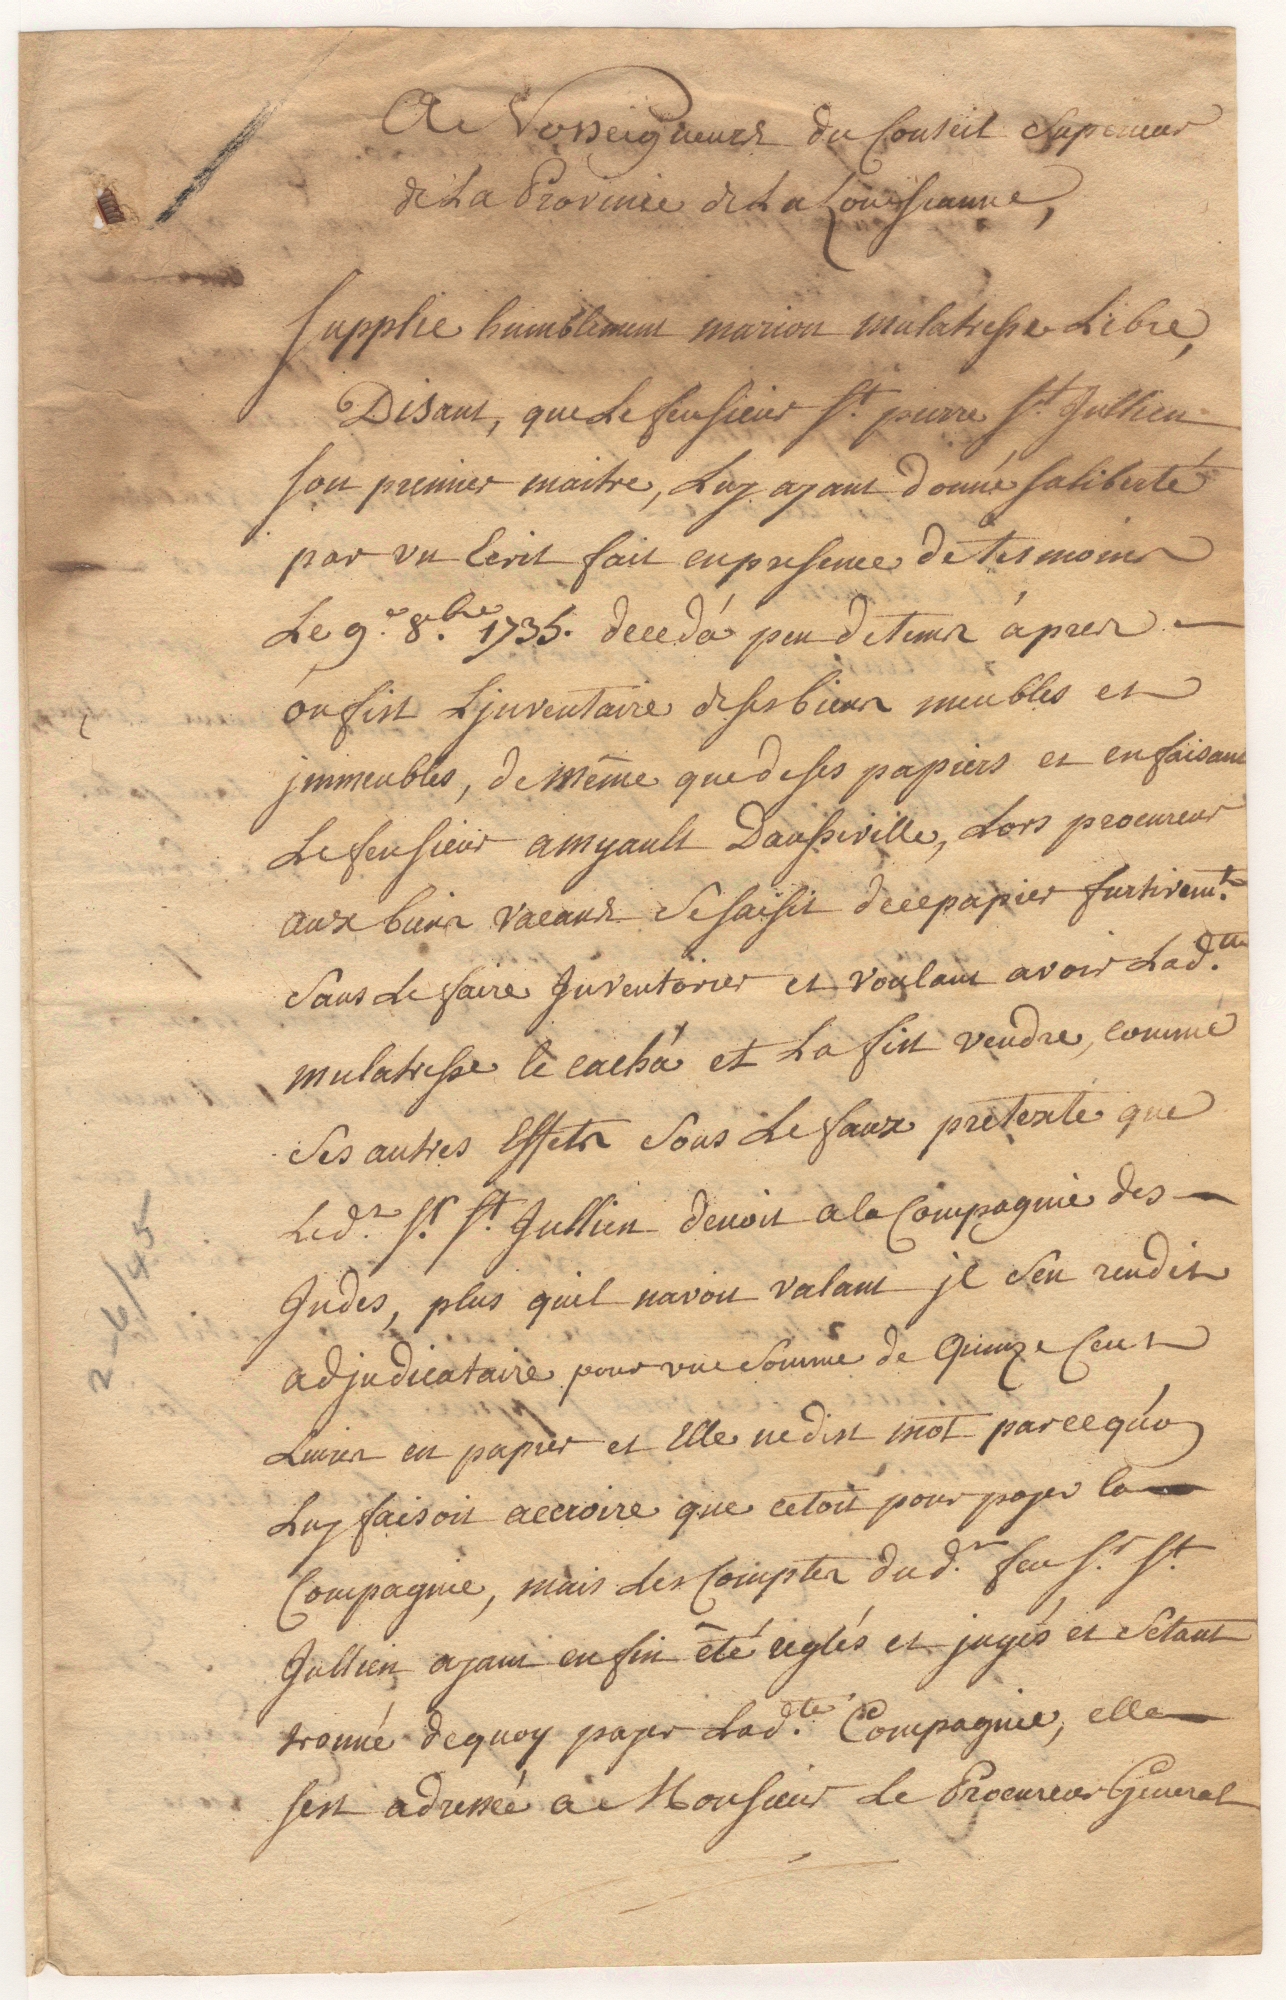 A Nosseigneurs du Conseil Superieur
de La Province de La Louissianne,
Supplie humblement marion mulatresse Libre,
Disant, que Le feu sieur St. pierre St. Jullien
son premier maitre, Luy ayant donné sa liberté
par un Ecrit fait en presence de tesmoins
Le 9.e 8.bre 1735. decedá peu de tems áprés
on fist L'jnventaire de ses biens meubles et
jmmeubles, de même que de ses papiers et en faisant
Le feu sieur amyault Dausseville, Lors procureur
aux biens vacans se saisit de ce papier furtivemt.
sans Le faire Jnventorier et voulant avoir Lad.tte
mulatresse le cachá et La fist vendre, comme
ses autres Effets sous Le faux pretexte que
Led.t Sr. St. Jullien devoit a la Compagnie des
Jndes, plus quil navoit valant jl sen rendit
adjudicataire pour une somme de Quinze Cent
Livres en papier et Elle ne dist mot parce qu'o
Luy faisoit accroire que cetoit pour payer la
Compagnie, mais Les Comptes du d.t feu Sr. St
Jullien ayant enfin êté reglés et jugés et s'etant
trouvé de quoy payer Lad.te Compagnie, elle
sest adressée a Monsieur Le Procureur General
2-6/45